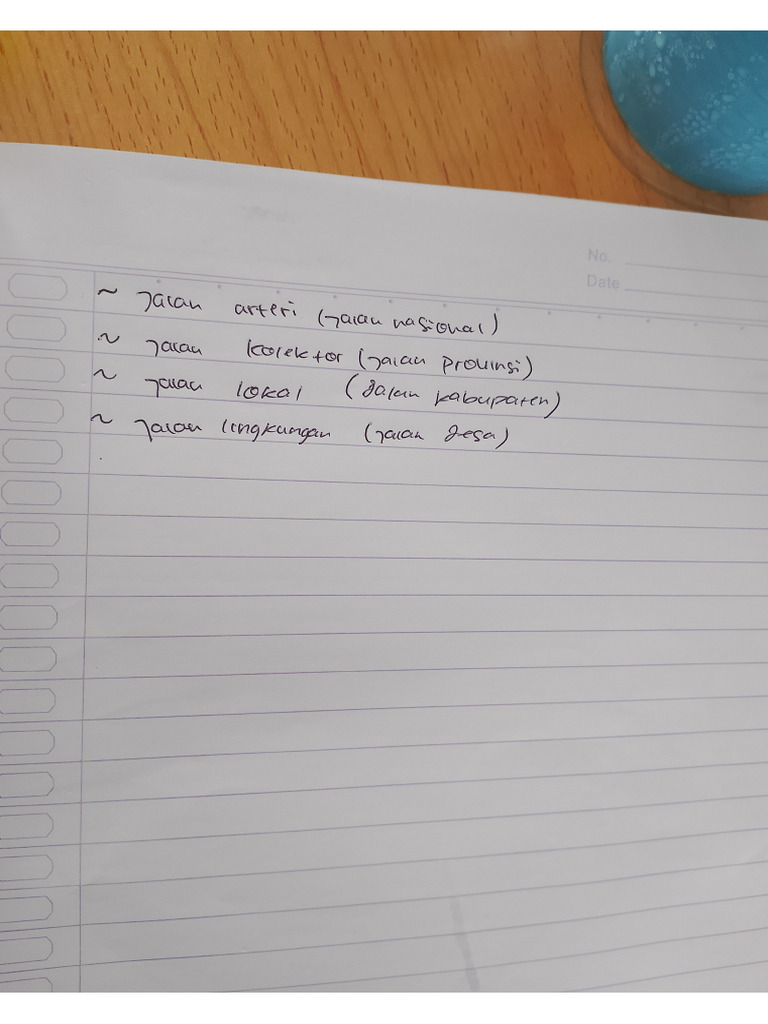 No.
Date
~ Jalan arteri (Jalan nasional)
~ Jalan kolektor (Jalan Provinsi)
~ Jalan lokal (Jalan kabupaten)
~ Jalan lingkungan (Jalan desa)